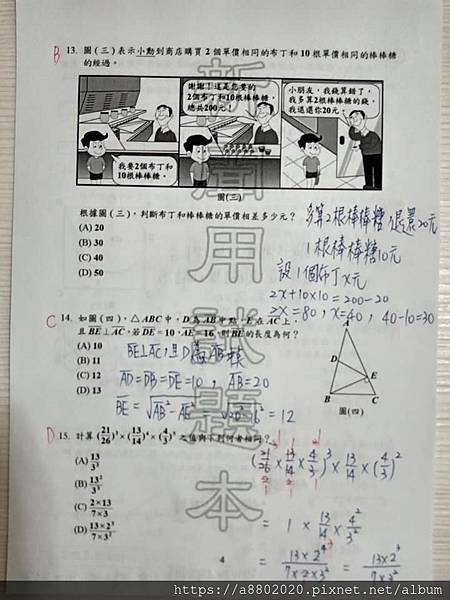 B 13. 圖(三)表示小勳到商店購買 2 個單價相同的布丁和 10 根單價相同的棒棒糖
的經過。
我要2個布丁和
10根棒棒糖。
謝謝!這是您要的
2個布丁和10根棒棒糖,
總共200元!
小朋友,我錢算錯了,
我多算2根棒棒糖的錢,
我退還你20元。
圖(三)
根據圖(三),判斷布丁和棒棒糖的單價相差多少元?
(A) 20
(B) 30
(C) 40
(D) 50
多算2根棒棒糖,退還20元
1根棒棒糖10元
設1個布丁x元
2x+10×10=200-20
2x=80, x=40, 40-10=30
C 14. 如圖(四),△ABC 中,D 為 AB 中點,E 在 AC 上,
且 BE⊥AC。若 DE=10,AE=16,則 BE 的長度為何?
(A) 10
(B) 11
(C) 12
(D) 13
BE⊥AC,且D為AB中點
AD=DB=DE=10, AB=20
BE=√AB²-AE²=√20²-16²=12
A
D
E
B
C
圖(四)
D 15. 計算 (21/26)³×(13/14)⁴×(4/3)⁵ 之值與下列何者相同?
(A) 13/3³
(B) 13²/3³
(C) 2×13/7×3
(D) 13×2³/7×3²
(21/26×13/14×4/3)³×13/14×(4/3)²
=1×13/14×4²/3²
=13×2⁴/7×2×3²=13×2³/7×3²
新聞用試題本
4
https://a8802020.pixnet.net/album